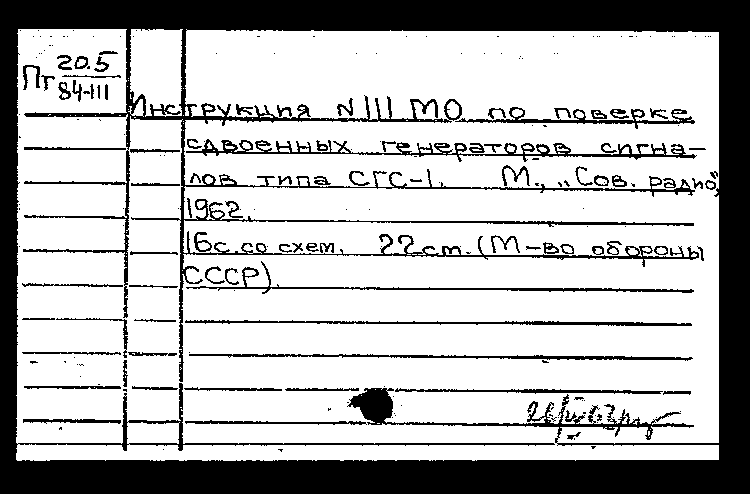 Пт 20.5
84-III
Инструкция N III МО по поверке
сдвоенных генераторов сигна-
лов типа СГС-1. М., „Сов. радио",
1962.
16с. со схем. 22 см. (М-во обороны
СССР).